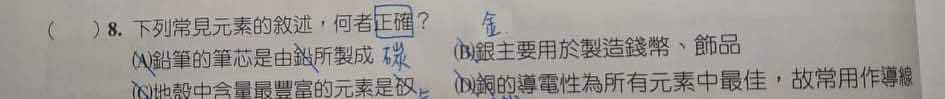 ( ) 8. 下列常見元素的敘述，何者正確？ 金
(A)鉛筆的筆芯是由鉛所製成 碳 (B)銀主要用於製造錢幣、飾品
(C)地殼中含量最豐富的元素是矽 (D)銅的導電性為所有元素中最佳，故常用作導線